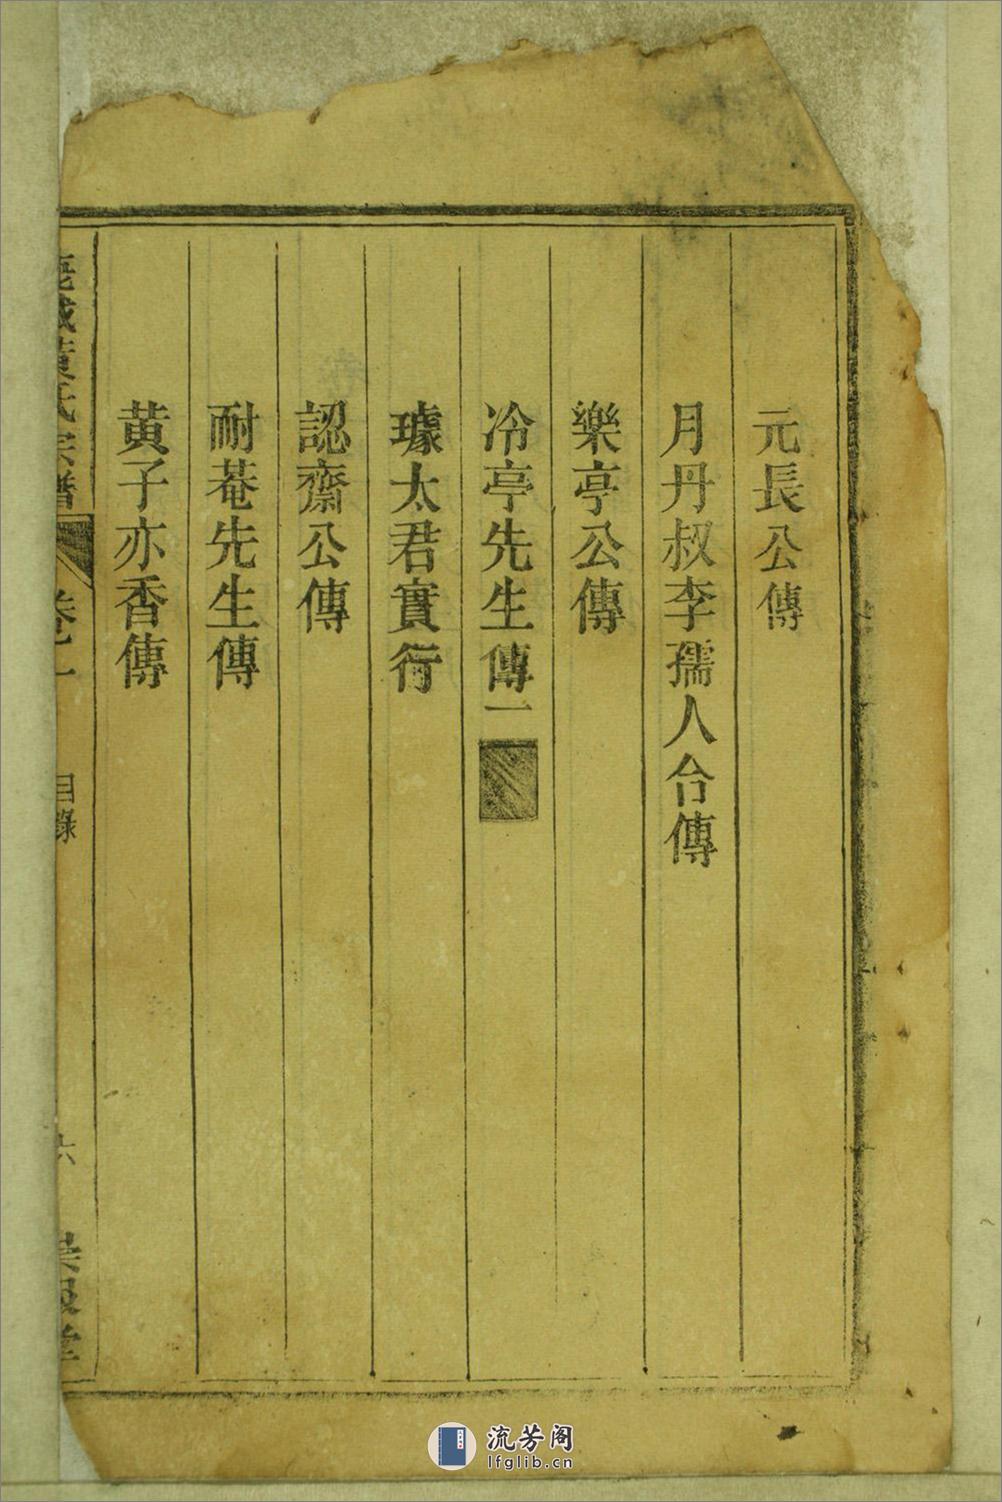 元長公傳
月丹叔李孺人合傳
樂亭公傳
冷亭先生傳一
璩太君實行
認齋公傳
耐菴先生傳
黄子亦香傳
城黄氏宗譜 卷 目錄 六
流芳阁
lfglib.cn